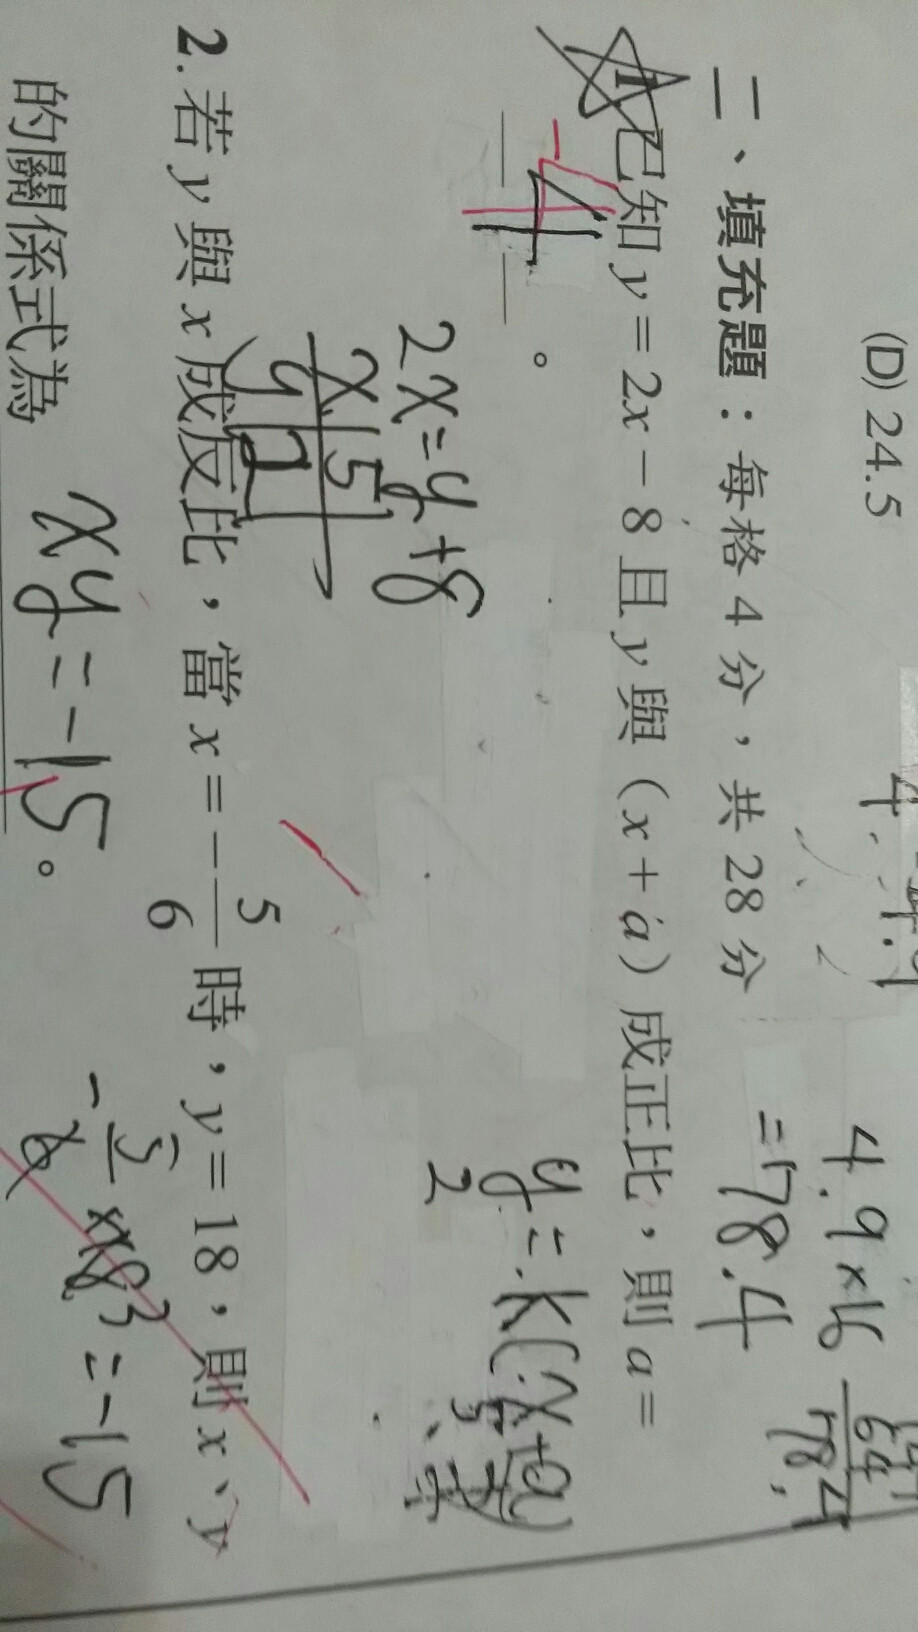 (D) 24.5
4.9×16
=78.4
二、填充題：每格 4 分，共 28 分
1. 已知 y = 2x − 8 且 y 與（x + a）成正比，則 a =
-4 。
2x=y+8
x 5
y 2
y=k(x+a)
2
2. 若 y 與 x 成反比，當 x = − 5/6 時，y = 18，則 x、y
的關係式為 xy=-15 。
-5/6 ×18 3 =-15